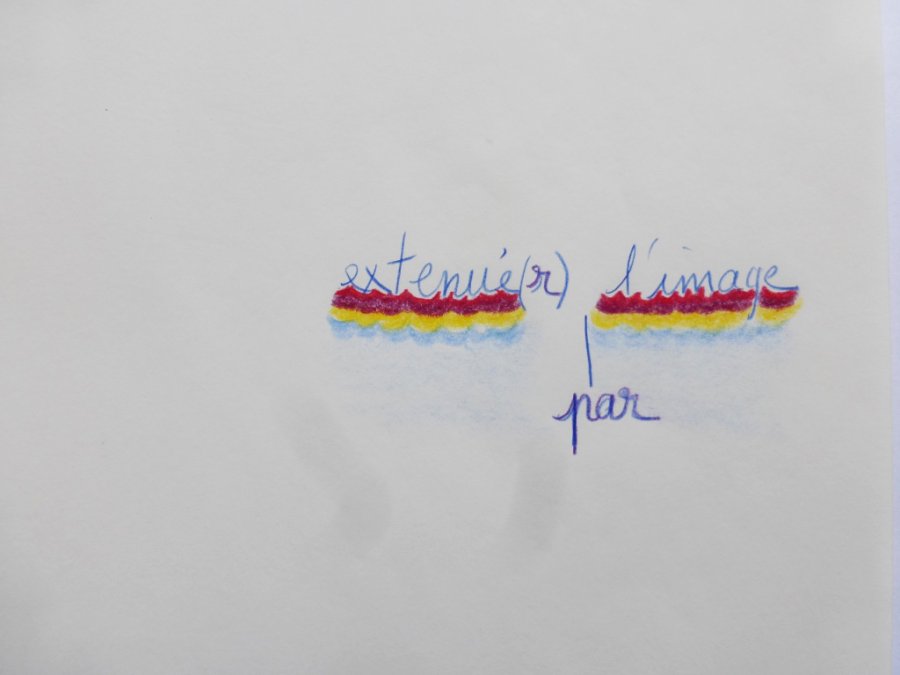 extenué(r) l'image
par